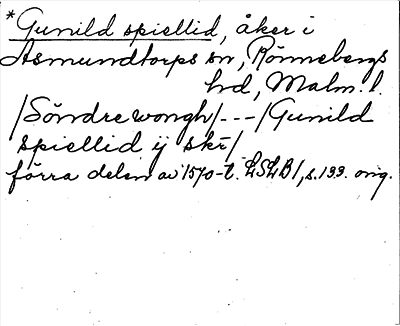 *Gunild spiellid, åker i
Asmundtorps sn, Rönnebergs
hd, Malm. l.
/Söndre wongh/---/Gunild
spiellid ij skr/
förra delen av 1570-t. LSLB 1, s. 133. orig.